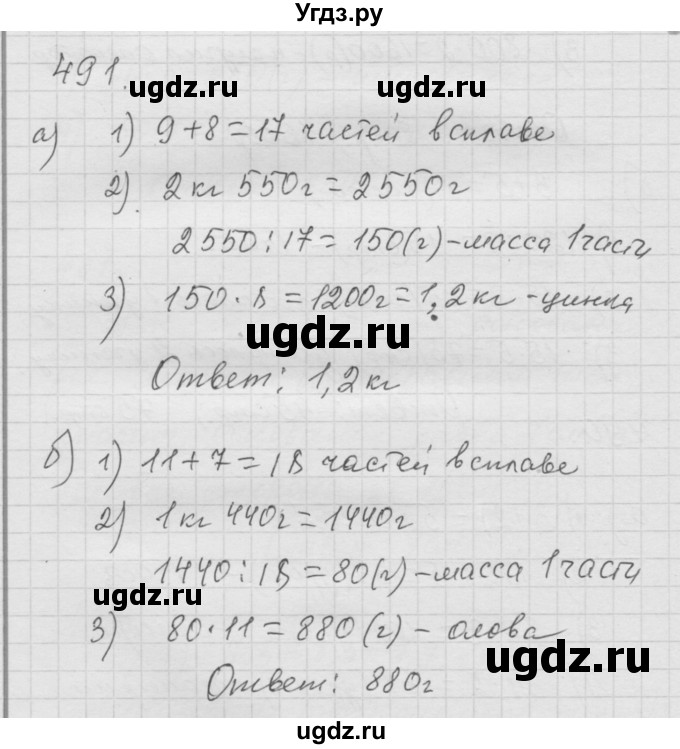 Угдз.ру
491.
ugdz.ru ugdz.ru
а) 1) 9+8=17 частей в сплаве
2) 2 кг 550г = 2550г
2550:17=150(г)-масса 1 части
3) 150·8=1200г=1,2кг-цинка
ugdz.ru
Ответ: 1,2 кг
б) 1) 11+7=18 частей в сплаве
2) 1 кг 440г=1440г
1440:18=80(г)-масса 1 части
ugdz.ru
3) 80·11=880(г)-олова
ugdz.ru
Ответ: 880г
ugdz.ru